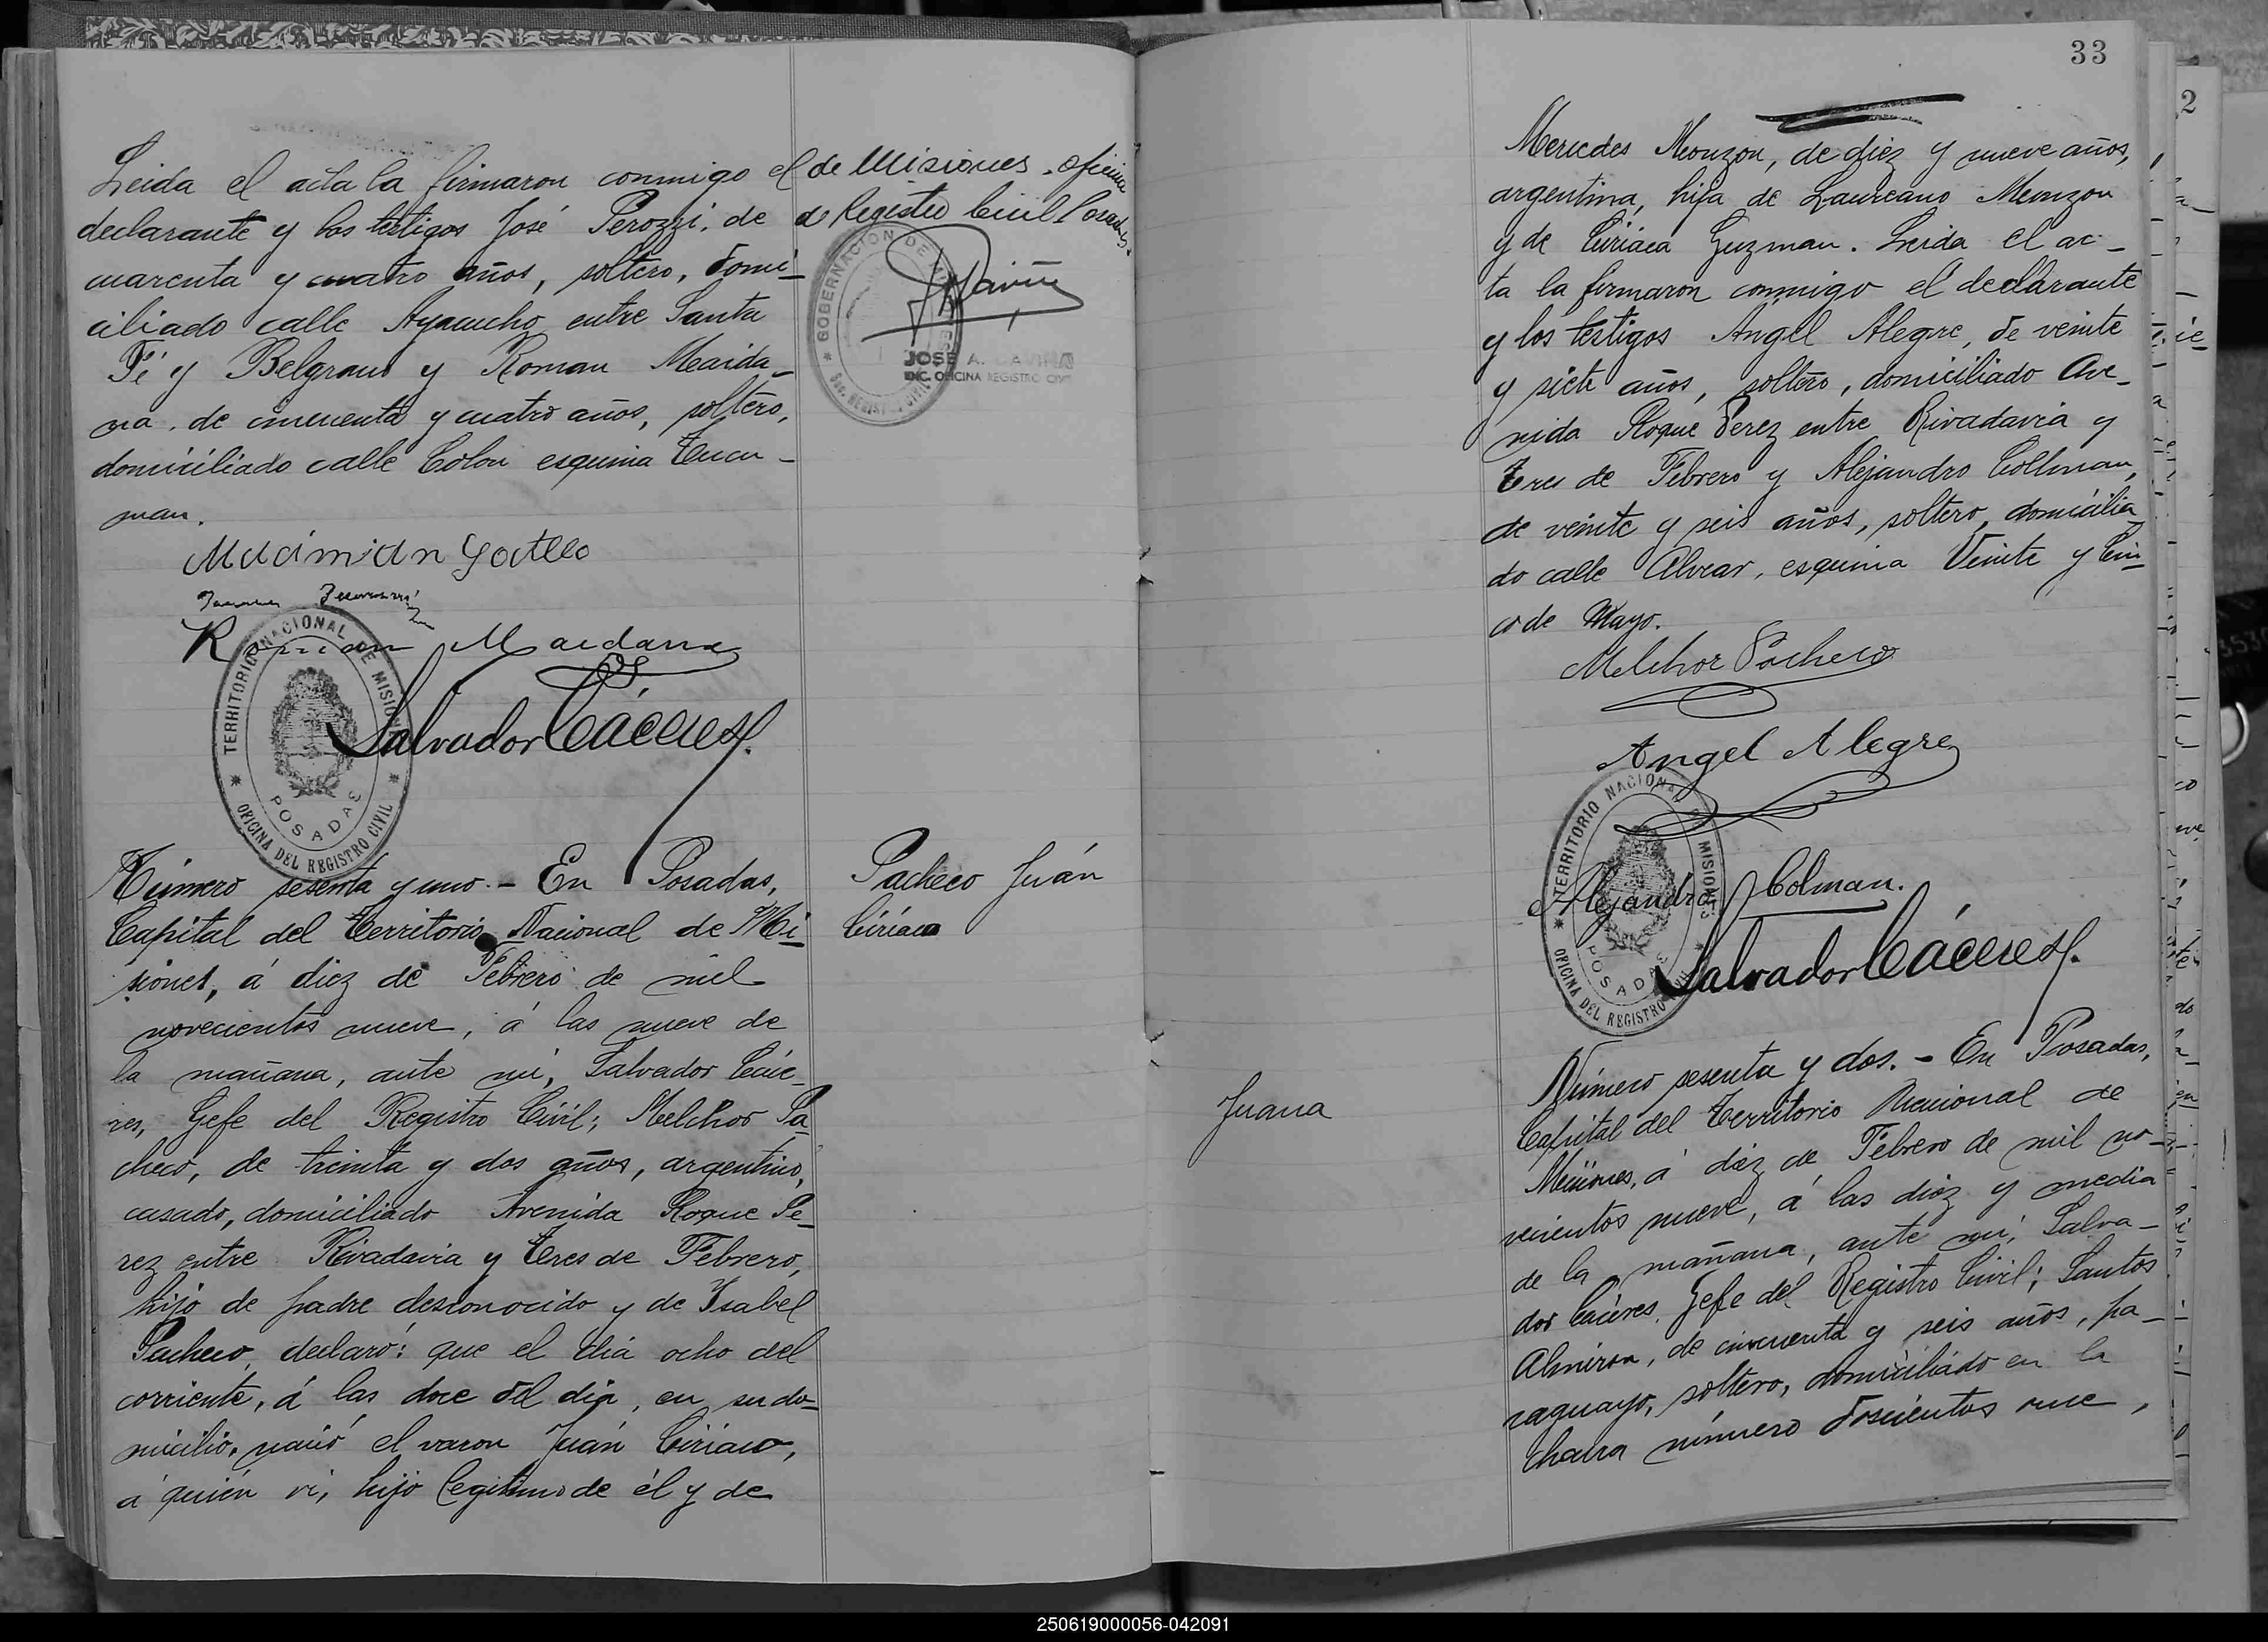 Leida el acta la firmaron conmigo el
declarante y los testigos José Perozzi, de
cuarenta y cuatro años, soltero, domi-
ciliado calle Ayacucho entre Santa
Fé y Belgrano y Roman Maida-
na, de cincuenta y cuatro años, soltero,
domiciliado calle Colon esquina Tucu-
man.
Roman Maidana
Salvador Cáceres.
TERRITORIO NACIONAL DE MISIONES
POSADAS
OFICINA DEL REGISTRO CIVIL
de Misiones. Oficina
de Registro Civil Posadas.
GOBERNACION DE MISIONES
JOSE A. DAVIÑA
ENC. OFICINA REGISTRO CIVIL
Número sesenta y uno.- En Posadas,
Capital del Territorio Nacional de Mi-
siones, á diez de Febrero de mil
novecientos nueve, á las nueve de
la mañana, ante mi, Salvador Cáce-
res, Gefe del Registro Civil; Melchor Pa-
checo, de treinta y dos años, argentino,
casado, domiciliado Avenida Roque Pe-
rez entre Rivadavia y Tres de Febrero,
hijo de padre desconocido y de Ysabel
Pacheco, declaró: que el dia ocho del
corriente, á las doce del dia, en su do-
micilio, nació el varon Juán Ciriaco,
á quién vi, hijo legitimo de él y de
Pacheco Juán
Ciriaco
33
Mercedes Monzon, de diez y nueve años,
argentina, hija de Laureano Monzon
y de Ciriaca Guzman. Leida el ac-
ta la firmaron conmigo el declarante
y los testigos Ángel Alegre, de veinte
y siete años, soltero, domiciliado Ave-
nida Roque Perez entre Rivadavia y
Tres de Febrero y Alejandro Collman,
de veinte y seis años, soltero, domicilia
do calle Alvear, esquina Veinte y Cin-
co de Mayo.
Melchor Pacheco
Angel Alegre
Alejandro Colman.
Salvador Cáceres.
TERRITORIO NACIONAL DE MISIONES
POSADAS
OFICINA DEL REGISTRO CIVIL
Juana
Número sesenta y dos.- En Posadas,
Capital del Territorio Nacional de
Misiones, á diez de Febrero de mil no-
vecientos nueve, á las diez y media
de la mañana, ante mi, Salva-
dor Cáceres, Gefe del Registro Civil; Santos
Almiron, de cincuenta y seis años, pa-
raguayo, soltero, domiciliado en la
chacra número doscientos once,
2
250619000056-042091